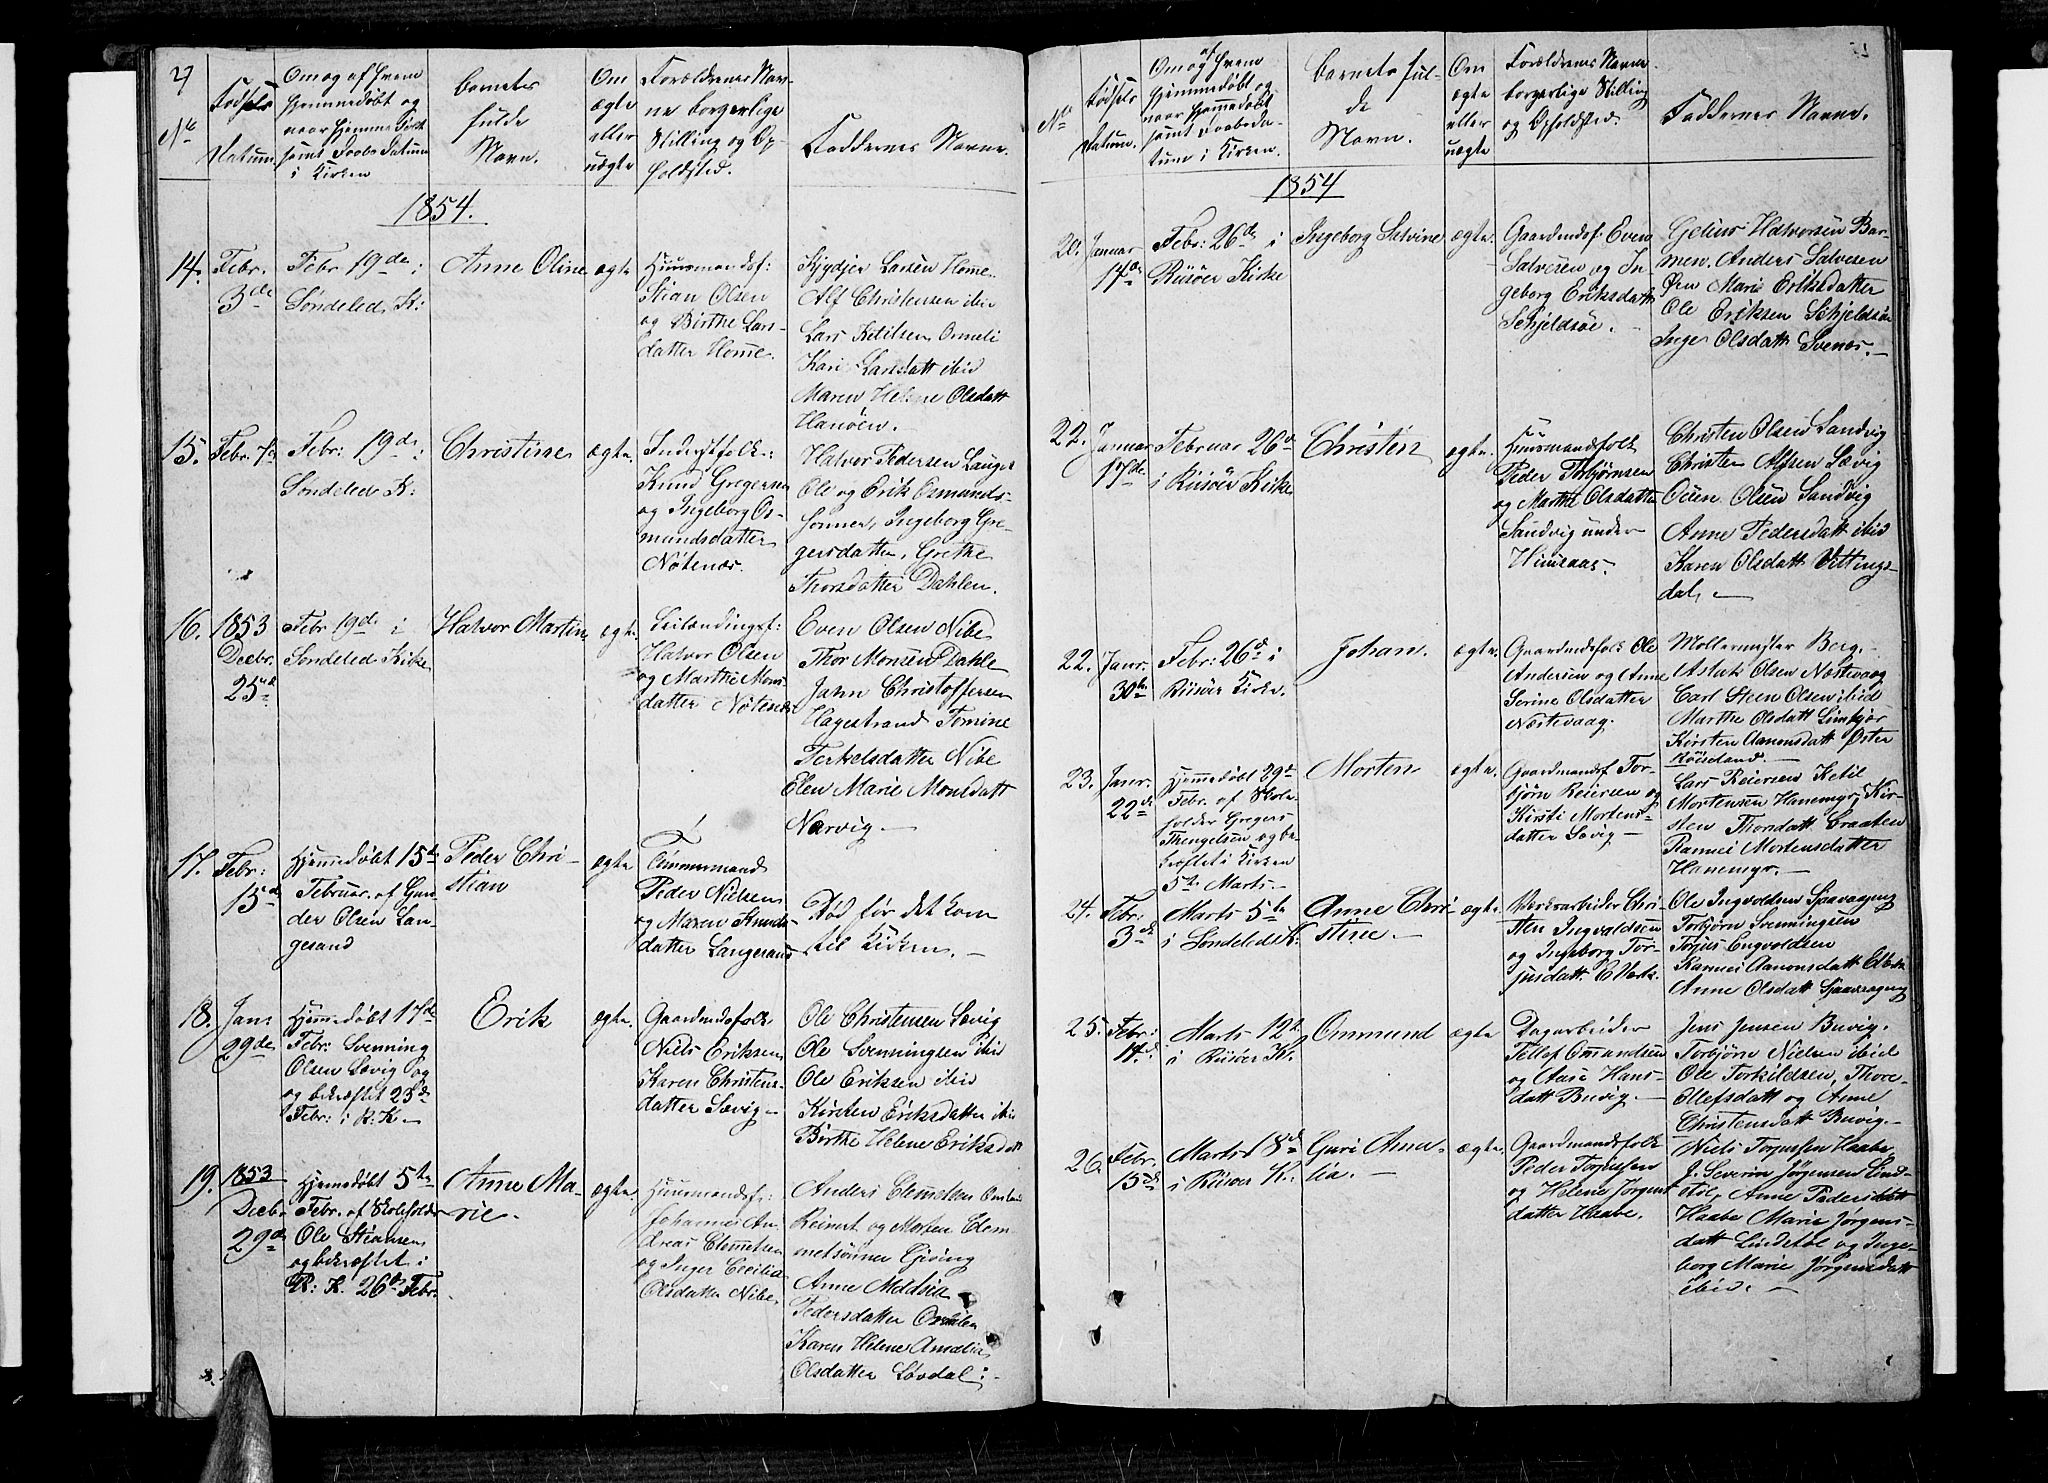 27
No
Fødsels
Datum.
Om og af hvem
hjemmedøbt og
naar hjemme døbt
samt Daabs Datum
i Kirken
barnets
fulde
Navn.
Om
ægte
eller
uægte
Forældrenes Nav-
ne borgerlige
Stilling og Op-
holdsted.
Faddernes Navne.
1854.
14.
Febr.
3de
Febr 19de i
Søndeled K:
Anne Oline
ægte
Huusmandsf:
Stian Olsen
og Birthe Lars-
datter Home.
Larsen Home.
Alf Christensen ibid
Lars Ketilsen
Kari Larsdatt ibid
Maren Helene Olsdatt
Hanöen.
15.
Febr.
Febr: 19de i
Søndeled K:
Christine
ægte.
Inderstfolk:
Knud Gregersen
og Ingeborg Os-
mundsdatter
Nøtenæs.
Halvor Pedersen
Ole og Erik Osmunds-
sønner, Ingeborg Gre-
gersdatter, Grethe
Thorsdatter Dahlen.
16.
1853
Decbr.
25de
Febr 19de i
Søndeled Kirke
Halvor Martin
ægte
Halvor Olsen
og Marthe Mons
datter Nøtenæs
Even Olsen Nibe
Thor Monsen Dahle
Jahn Christoffersen
Hagestrand Tomine
Terkelsdatter Nibe
Elen Marie Monsdatt
Narvig.
17.
Febr:
15d
Hjemmedøbt 15de
Februar. af Gun-
der Olsen Lan-
gesand
Peder Chri-
stian
ægte
Tømmermand
Peder Nielsen
og Maren Knuds-
datter Langesand
Død før det kom
til Kirken.
18.
Jan:
29de
Hjemmedøbt 17de
Febr: Svenning
Olsen Søvig og
og bekræftet 23de
Febr: i R: K
Erik
ægte.
Gaardmdsfolk
Niels Eriksen
Karen Christens-
datter Søvig
Ole Christensen Søvig
Ole Svenningsen ibid
Ole Eriksen ibid
Kirsten Eriksdatter ibid
Birthe Helene Eriksdatt
19.
1853
Decbr
29de
Hjemmedøbt 5te
Febr. af Skoleholder
Ole Stiansen
og bekræftet i
R: K. 26de Febr.
Anne Ma-
rie.
ægte.
Huusmandsf:
Johannes An-
dreas Clemetsen
og Inger Cecilia
Olsdatter Nibe
Anders Clemetsen
Reinert og Morten Clem-
metsønner Gjeving
Anne
Pedersdatter
Karen Helene Amalia
Olsdatter Løvdal
No
Fødsels
Datum.
Om og af hvem
hjemmedøbt og
naar hjemmedøbt
samt Daabsda-
tum i Kirken.
barnets ful-
de
Navn.
Om
ægte
eller
uægte
Forældrenes Navne
borgerlige Stilling
og Opholdsted.
Faddernes Navne.
1854
20.
Januar
14de
Febr: 26de i
Risøer Kirke
Ingeborg Salvine
ægte.
Gaardmdsf: Even
Salvesen og In-
geborg Eriksdatt
Schjeldsøe.
Gelius Halvorsen Bar-
men. Anders Salvesen
Øen Marie Eriksdatter
Ole Eriksen Schjeldsøe
Inger Olsdatt Svenæs.
22.
Januar
17de
Februar 26de
i Risøer Kirke
Christen
ægte.
Huusmandsfolk
Peder Torbjørnsen
og Marthe Olsdatter
Sandvig under
Christen Olsen Sandvig
Christen Alfsen Søvig
Ouen Olsen Sandvig
Anne Pedersdatt ibid
Karen Olsdatt Vittings-
dal.
22.
Janr.
30te
Febr: 26de i
Risøer Kirke.
Johan.
ægte.
Gaardmdsfolk Ole
Andersen og Anne
Serine Olsdatter
Næstevaag.
Møllermester Berg.
Aslak Olsen Næstevaag
Carl Steen Olsen ibid
Marthe Olsdatt
Kirsten Aanonsdatt Øster
23.
Janr.
22de
Hjemmedøbt 29de
Febr. af Skole-
holder Gregers
Thengelsen og be-
kræftet i Kirken
5te Marts.
Morten
ægte.
Gaardmandsf Tor-
bjørn Reiersen og
Kirsti Mortens-
datter Søvig
Lars Reiersen Ketil
Mortensen Hanemyr, Kir-
sten Thorsdatt Braaten
Rannei Mortensdatter
Hanemyr.
24.
Febr.
3de
Marts 5te
i Søndeled K:
Anne Chri-
stine.
ægte.
Værksarbeider Chri-
sten Ingvaldsen
og Ingeborg Tor-
jusdatt E Værk.
Ole Ingvoldsen
Torbjørn Svenningsen
Torjus Engvoldsen
Rannei Aanonsdatt
Anne Olsdatt
25.
Febr:
Marts 12te
i Risøer K.
Ommund
ægte
Dagarbeider
Tellef Omundsen
og Aase Hans-
datt Buvig.
Jens Jensen Buvig.
Torbjørn Nielsen ibid
Ole Torkildsen, Thore
Ollefsdatt og Anne
Christensdatt Buvig.
26.
Febr.
15de
Marts 18de
i Risøer K.
Guri Ama-
lia.
ægte.
Gaardmandsfolk
Peder Torjussen
og Helene Jørgens
datter Haabe.
Niels Torjussen Haabe,
J. Severin Jørgensen Lind-
støl, Anne Pedersdatt
Haabe Marie Jørgens-
datt Lindstøl og Inge-
borg Marie Jørgensdatt
ibid.